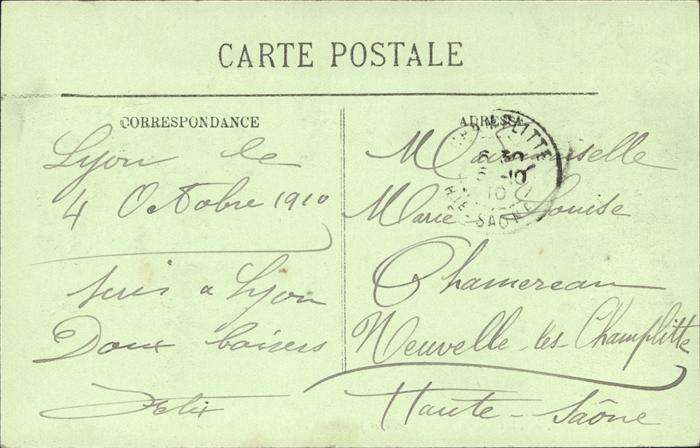 CARTE POSTALE
CORRESPONDANCE
Lyon le
4 Octobre 1910
suis a Lyon
Doux baisers
Felix
ADRESSE
CHAMPLITTE
6 30
5 -10
10
HTE SAONE
Mademoiselle
Marie Louise
Chamereau
Neuvelle-les-Champlitte
Haute-Saône